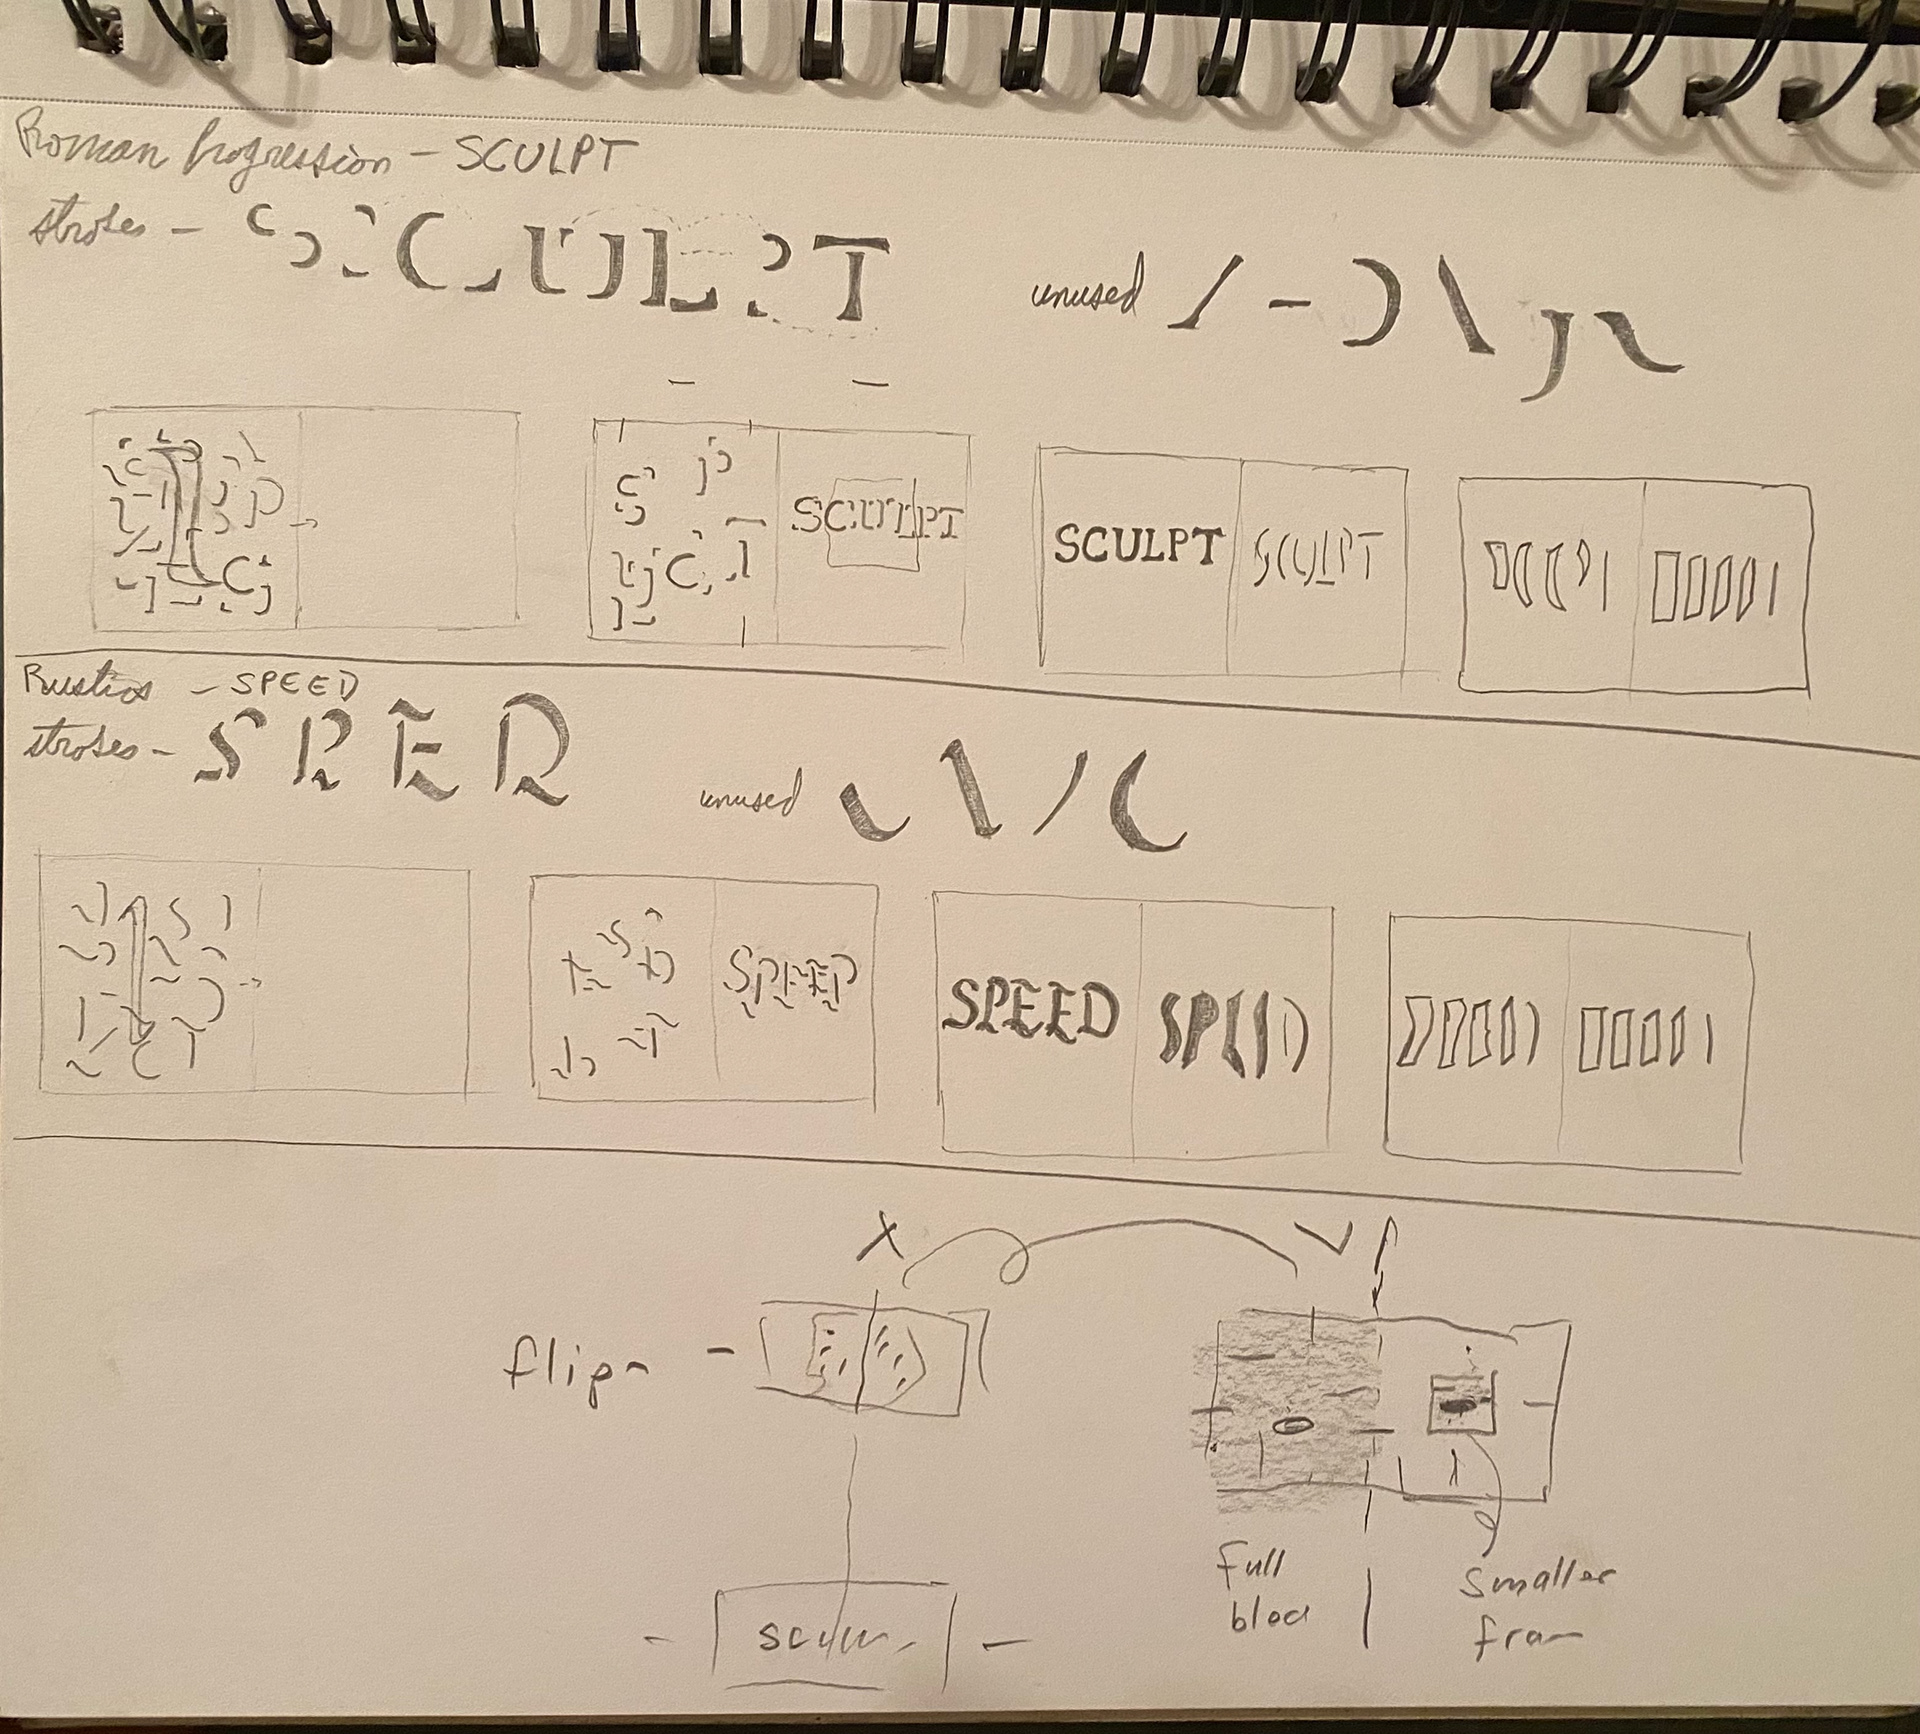 Roman Progression - SCULPT
strokes - SCULPT
unused
SCULPT
SCULPT SCULPT
Rustics - SPEED
strokes - S P E R
unused
SPEED
SPEED
flip
Full
Smaller